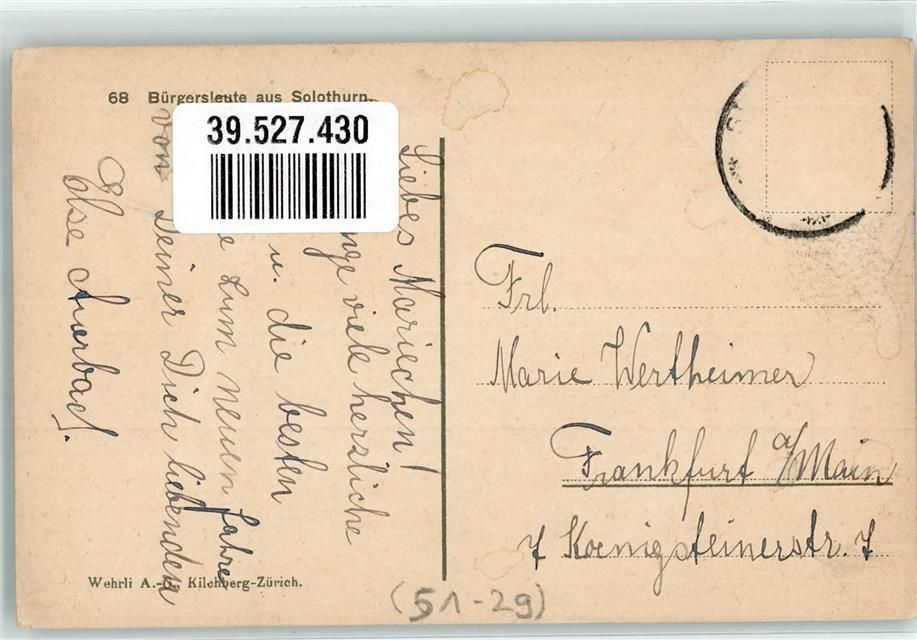 68 Bürgersleute aus Solothurn.
39.527.430
Liebes Mariechen!
viele herzliche
u. die besten
zum neuen Jahre
von Deiner Dich liebenden
Else Auerbach.
Wehrli A.-G., Kilchberg-Zürich.
Frl.
Marie Wertheimer
Frankfurt a/Main
7 Koenigsteinerstr. 7
(51-29)